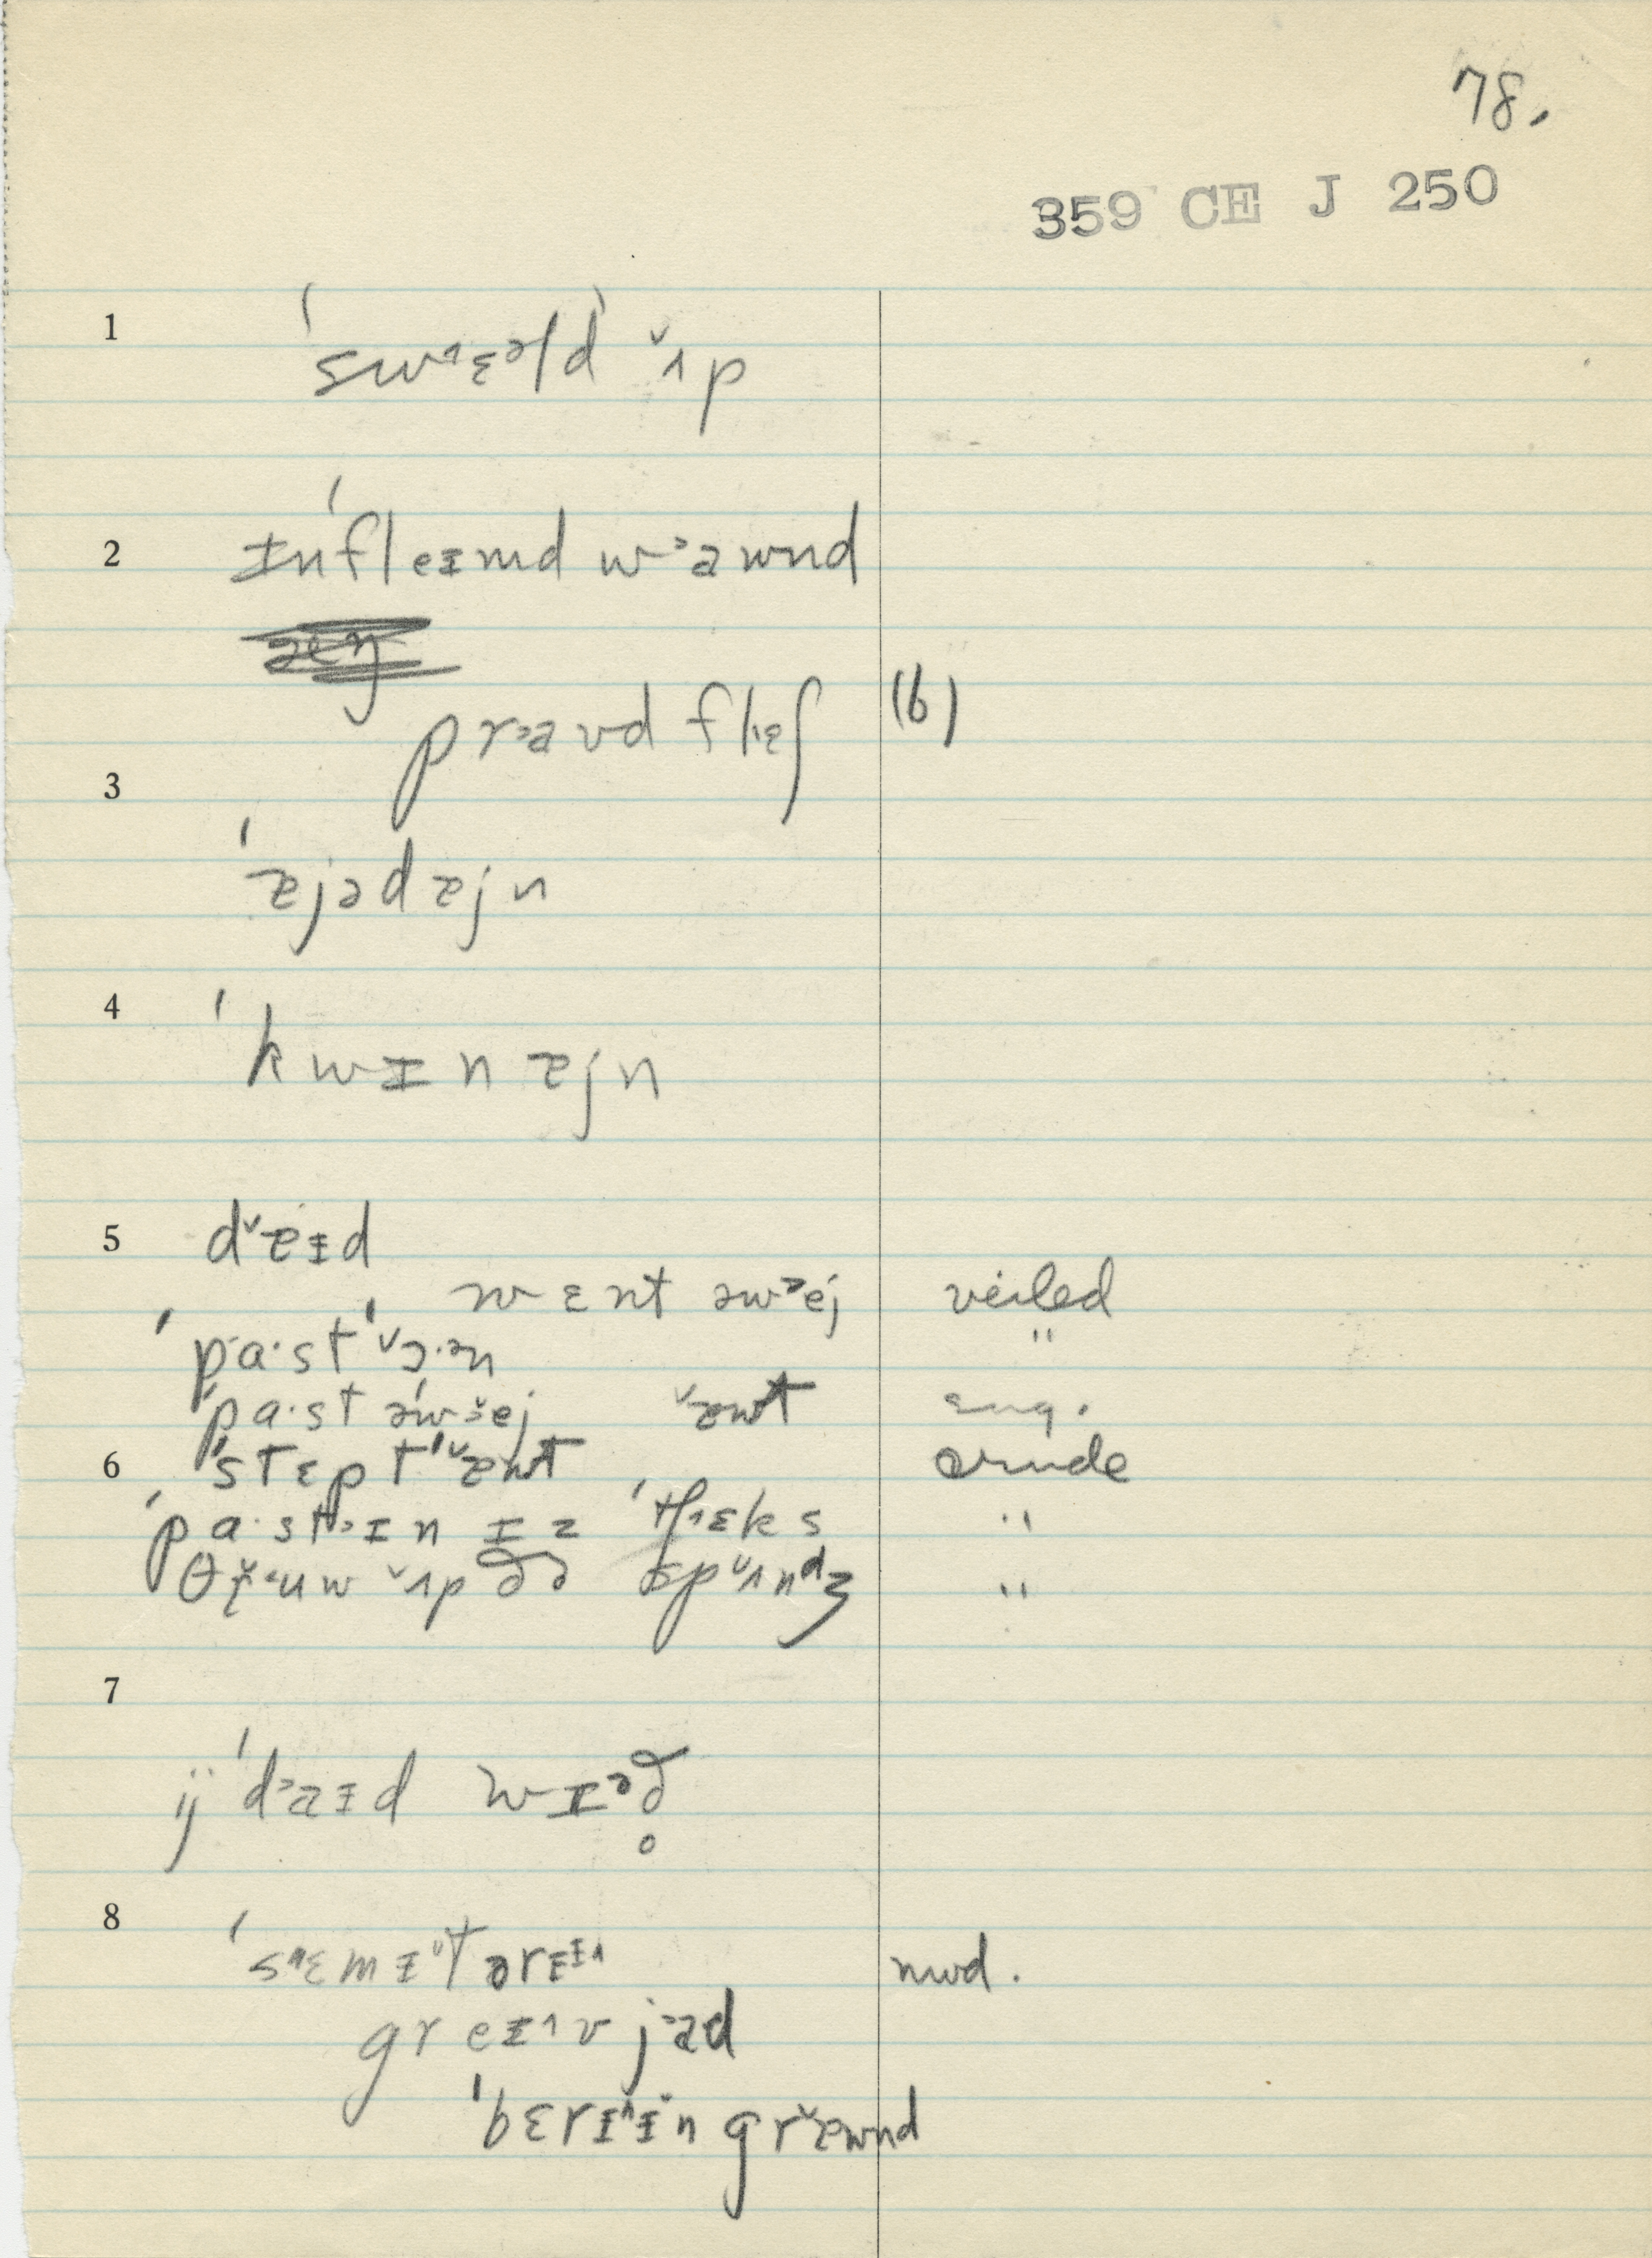 78.
359 CE J 250
1 ˈswɛəld ˇʌp
2 ɪnˈfleɪmd w˃awnd
pr˃aʊd flɛʃ (6)
3 ˈæjədæjn
4 ˈkwɪnæjn
5 dˇæɪd
wɛnt əw˃ej veiled
ˈpa·stˈˇɔ·ən "
ˈpa·st əˈw˃ej ˇəwt eug.
6 ˈstɛptˈˇæwt crude
ˈpa·st˃ɪn ɪz ˈtʃɛks "
θr̥ˇuw ˇʌp ðə spˇʌndʒ "
7
ij ˈd˃aɪd wɪəð̥
8 ˈsɛmɪˇtərɛɪ mod.
greɪ˄v j˃ad
ˈbɛrɪ˄ɪn grˇæwnd